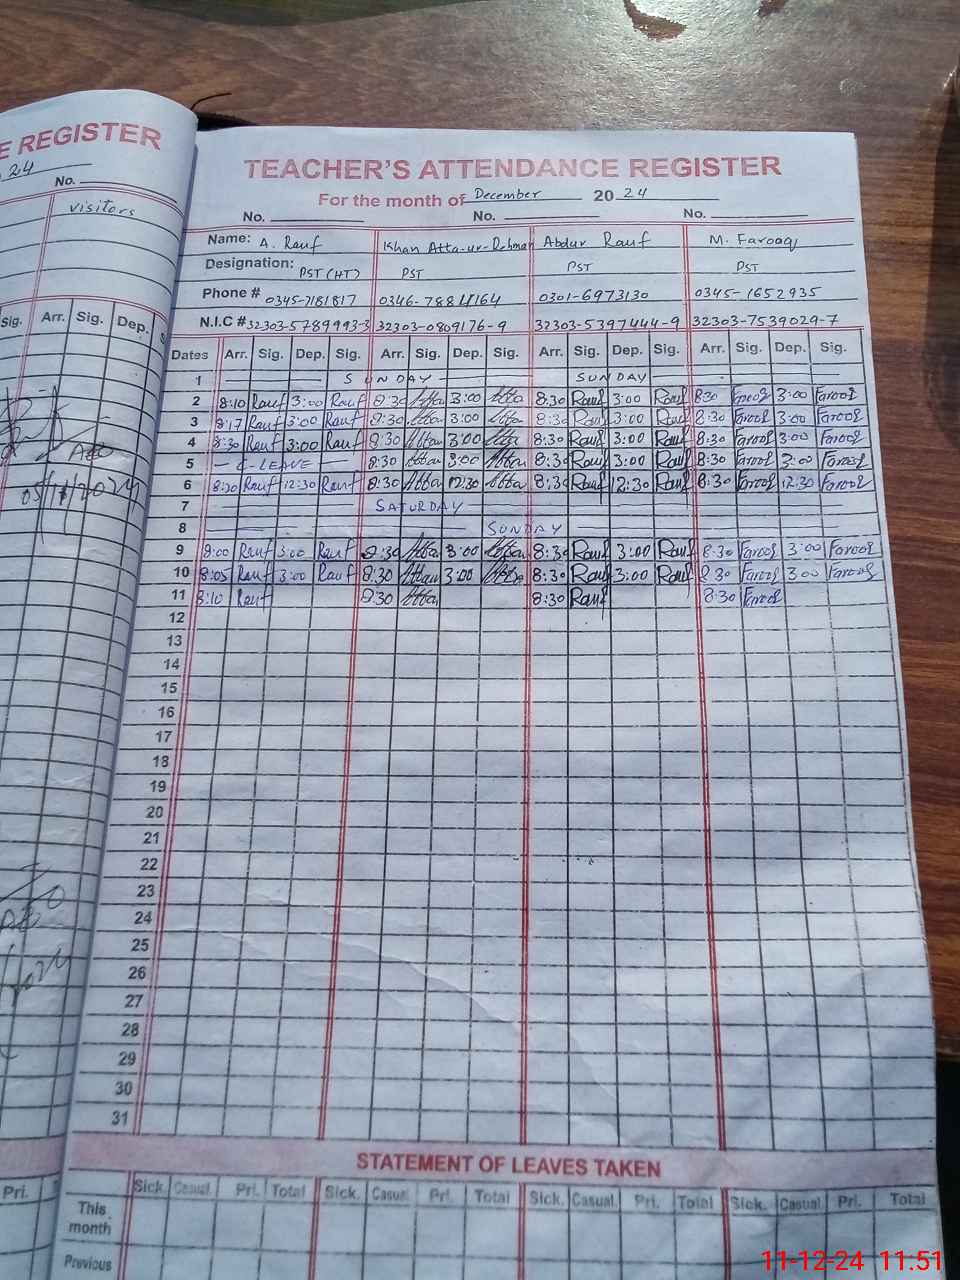 E REGISTER
24
No.
visitors
Sig. Arr. Sig. Dep.
05/11/2024
Pri.
TEACHER'S ATTENDANCE REGISTER
For the month of December 20 24
No. No. No.
Name: A. Rauf Khan Atta-ur-Rehman Abdur Rauf M. Farooq
Designation: PST (HT) PST PST PST
Phone # 0345-7181817 0346-7884164 0301-6973130 0345-1652935
N.I.C # 32303-5789993-3 32303-0809176-9 32303-5397444-9 32303-7539029-7
Dates Arr. Sig. Dep. Sig. Arr. Sig. Dep. Sig. Arr. Sig. Dep. Sig. Arr. Sig. Dep. Sig.
1 SUNDAY SUNDAY
2 8:10 Rauf 3:00 Rauf 8:30 Atta 3:00 Atta 8:30 Rauf 3:00 Rauf 8:30 Farooq 3:00 Farooq
3 8:17 Rauf 3:00 Rauf 8:30 Atta 3:00 Atta 8:30 Rauf 3:00 Rauf 8:30 Farooq 3:00 Farooq
4 8:30 Rauf 3:00 Rauf 8:30 Atta 3:00 Atta 8:30 Rauf 3:00 Rauf 8:30 Farooq 3:00 Farooq
5 C-LEAVE 8:30 Atta 3:00 Atta 8:30 Rauf 3:00 Rauf 8:30 Farooq 3:00 Farooq
6 8:30 Rauf 12:30 Rauf 8:30 Atta 12:30 Atta 8:30 Rauf 12:30 Rauf 8:30 Farooq 12:30 Farooq
7 SATURDAY
8 SUNDAY
9 8:00 Rauf 3:00 Rauf 8:30 Atta 3:00 Atta 8:30 Rauf 3:00 Rauf 8:30 Farooq 3:00 Farooq
10 8:05 Rauf 3:00 Rauf 8:30 Atta 3:00 Atta 8:30 Rauf 3:00 Rauf 8:30 Farooq 3:00 Farooq
11 8:10 Rauf 8:30 Atta 8:30 Rauf 8:30 Farooq
12
13
14
15
16
17
18
19
20
21
22
23
24
25
26
27
28
29
30
31
STATEMENT OF LEAVES TAKEN
Sick. Casual. Pri. Total Sick. Casual Pri. Total Sick. Casual. Pri. Total Sick. Casual. Pri. Total
This month
Previous
11-12-24 11:51